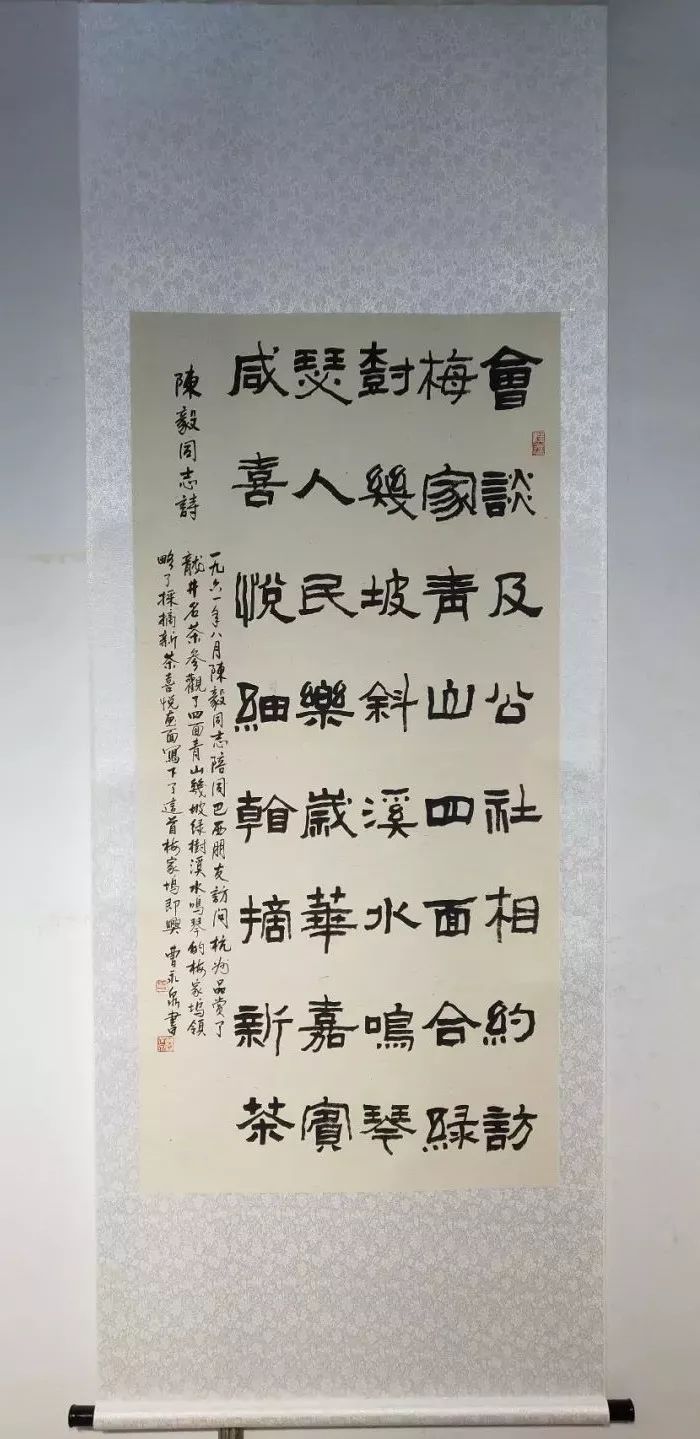 會談及公社相約訪
梅家青山四面合綠
樹幾坡斜溪水鳴琴
瑟人民樂歲華嘉賓
咸喜悅細看摘新茶
陳毅同志詩
一九六一年八月陳毅同志陪同巴西朋友訪问杭州品赏了
龍井名茶参觀了四面青山幾坡绿樹溪水鳴琴的梅家塢领
略了採摘新茶喜悦画面寫下了這首梅家塢即興 曹永泉書